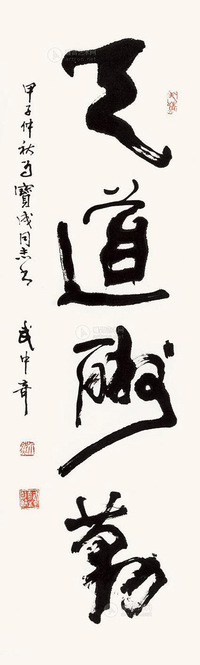 天道酬勤
甲子仲秋為寶成同志之
武中奇